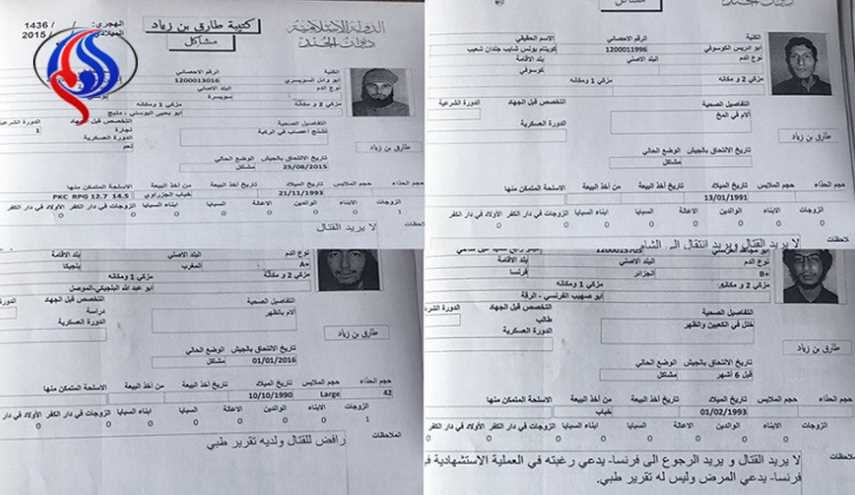 1436 / / الهجري:
2015 / / الميلادي
كتيبة طارق بن زياد
مشاكل
الدولة الإسلامية
ديوان الجند
الكنية الرقم الاحصائي
ابو وائل السويسري 1200013016
نوع الدم البلد الاصلي
سويسرة
مزكي 2 و مكانه مزكي 1 ومكانه
ابو يحيى التونسي - منبج
التفاصيل الصحية التخصص قبل الجهاد الدورة الشرعية
تشنج اعصاب في الركبة تجارة 1
الدورة العسكرية
نعم
طارق بن زياد
تاريخ الالتحاق بالجيش الوضع الحالي
25/08/2015 مشاكل
حجم الحذاء حجم الملابس تاريخ الميلاد تاريخ أخذ البيعة من أخذ البيعة الاسلحة المتمكن منها
21/11/1993 خباب الجزراوي PKC RPG 12.7 14.5
الزوجات الابناء الوالدين الاعالة السبايا ابناء السبايا الزوجات في دار الكفر الأولاد في دار الكفر
1 0 0 0 0 0 0 0
لا يريد القتال
ديوان الجند
مشاكل
الكنية الرقم الاحصائي الاسم الحقيقي
ابو ادريس الكوسوفي 1200011996
نوع الدم البلد الاصلي بلد الاقامة
كوسوفي
مزكي 2 و مكانه مزكي 1 ومكانه
التفاصيل الصحية التخصص قبل الجهاد الدورة الشرعية
الام في المخ
الدورة العسكرية
طارق بن زياد
تاريخ الالتحاق بالجيش الوضع الحالي
مشاكل
حجم الحذاء حجم الملابس تاريخ الميلاد تاريخ أخذ البيعة من أخذ البيعة الاسلحة المتمكن منها
13/01/1991
الزوجات الابناء الوالدين الاعالة السبايا ابناء السبايا الزوجات في دار الكفر الأولاد في دار الكفر
0 0 0 0 0 0 0
ملاحظات لا يريد القتال ويريد انتقال الى الشام
نوع الدم البلد الاصلي بلد الاقامة
A+ المغرب بلجيكا
مزكي 2 و مكانه مزكي 1 ومكانه
ابو عبد الله البلجيكي-الموصل
التفاصيل الصحية التخصص قبل الجهاد
الام بالظهر دراسة
الدورة العسكرية
طارق بن زياد
تاريخ الالتحاق بالجيش الوضع الحالي
01/01/2016 مشاكل
حجم الحذاء حجم الملابس تاريخ الميلاد تاريخ أخذ البيعة من أخذ البيعة الاسلحة المتمكن منها
42 Large 10/10/1990
الزوجات الابناء الوالدين الاعالة السبايا ابناء السبايا الزوجات في دار الكفر الأولاد في دار الكفر
1 0 0 0 0 0 0 0
الملاحظات رافض للقتال ولديه تقرير طبي
1200015705
نوع الدم البلد الاصلي بلد الاقامة
B+ الجزائر فرنسا
مزكي 2 و مكانه مزكي 1 ومكانه
ابو صهيب الفرنسي - الرقة
التفاصيل الصحية التخصص قبل الجهاد
ختل في الكعبين والظهر طالب
الدورة العسكرية
طارق بن زياد
تاريخ الالتحاق بالجيش الوضع الحالي
قبل 6 أشهر مشاكل
حجم الحذاء حجم الملابس تاريخ الميلاد تاريخ أخذ البيعة من أخذ البيعة الاسلحة المتمكن منها
01/02/1993 خباب
الزوجات الابناء الوالدين الاعالة السبايا ابناء السبايا الزوجات في دار الكفر الأولاد في دار الكفر
0 0 0 0 0 0 0
الملاحظات لا يريد القتال و يريد الرجوع الى فرنسا- يدعي رغبته في العملية الاستشهادية في
فرنسا- يدعي المرض وليس له تقرير طبي.